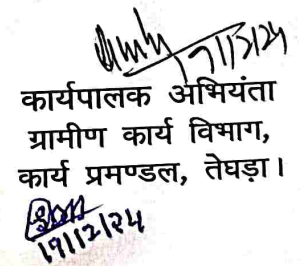 19/12/24
कार्यपालक अभियंता
ग्रामीण कार्य विभाग,
कार्य प्रमण्डल, तेघड़ा।
19/12/24